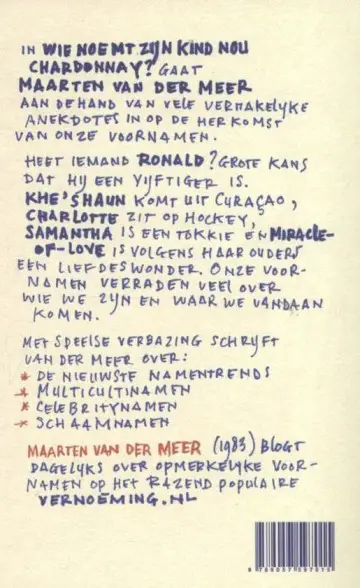 IN WIE NOEMT ZIJN KIND NOU
CHARDONNAY? GAAT
MAARTEN VAN DER MEER
AAN DE HAND VAN VELE VERMAKELIJKE
ANEKDOTES IN OP DE HERKOMST
VAN ONZE VOORNAMEN.
HEET IEMAND RONALD? GROTE KANS
DAT HIJ EEN VIJFTIGER IS.
KHE'SHAUN KOMT UIT CURAÇAO,
CHARLOTTE ZIT OP HOCKEY,
SAMANTHA IS EEN TOKKIE EN MIRACLE-
OF-LOVE IS VOLGENS HAAR OUDERS
EEN LIEFDESWONDER. ONZE VOOR-
NAMEN VERRADEN VEEL OVER
WIE WE ZIJN EN WAAR WE VANDAAN
KOMEN.
MET SPEELSE VERBAZING SCHRIJFT
VAN DER MEER OVER:
* DE NIEUWSTE NAMENTRENDS
* MULTICULTINAMEN
* CELEBRITYNAMEN
* SCHAAMNAMEN
MAARTEN VAN DER MEER (1983) BLOGT
DAGELIJKS OVER OPMERKELIJKE VOOR-
NAMEN OP HET RAZEND POPULAIRE
VERNOEMING.NL